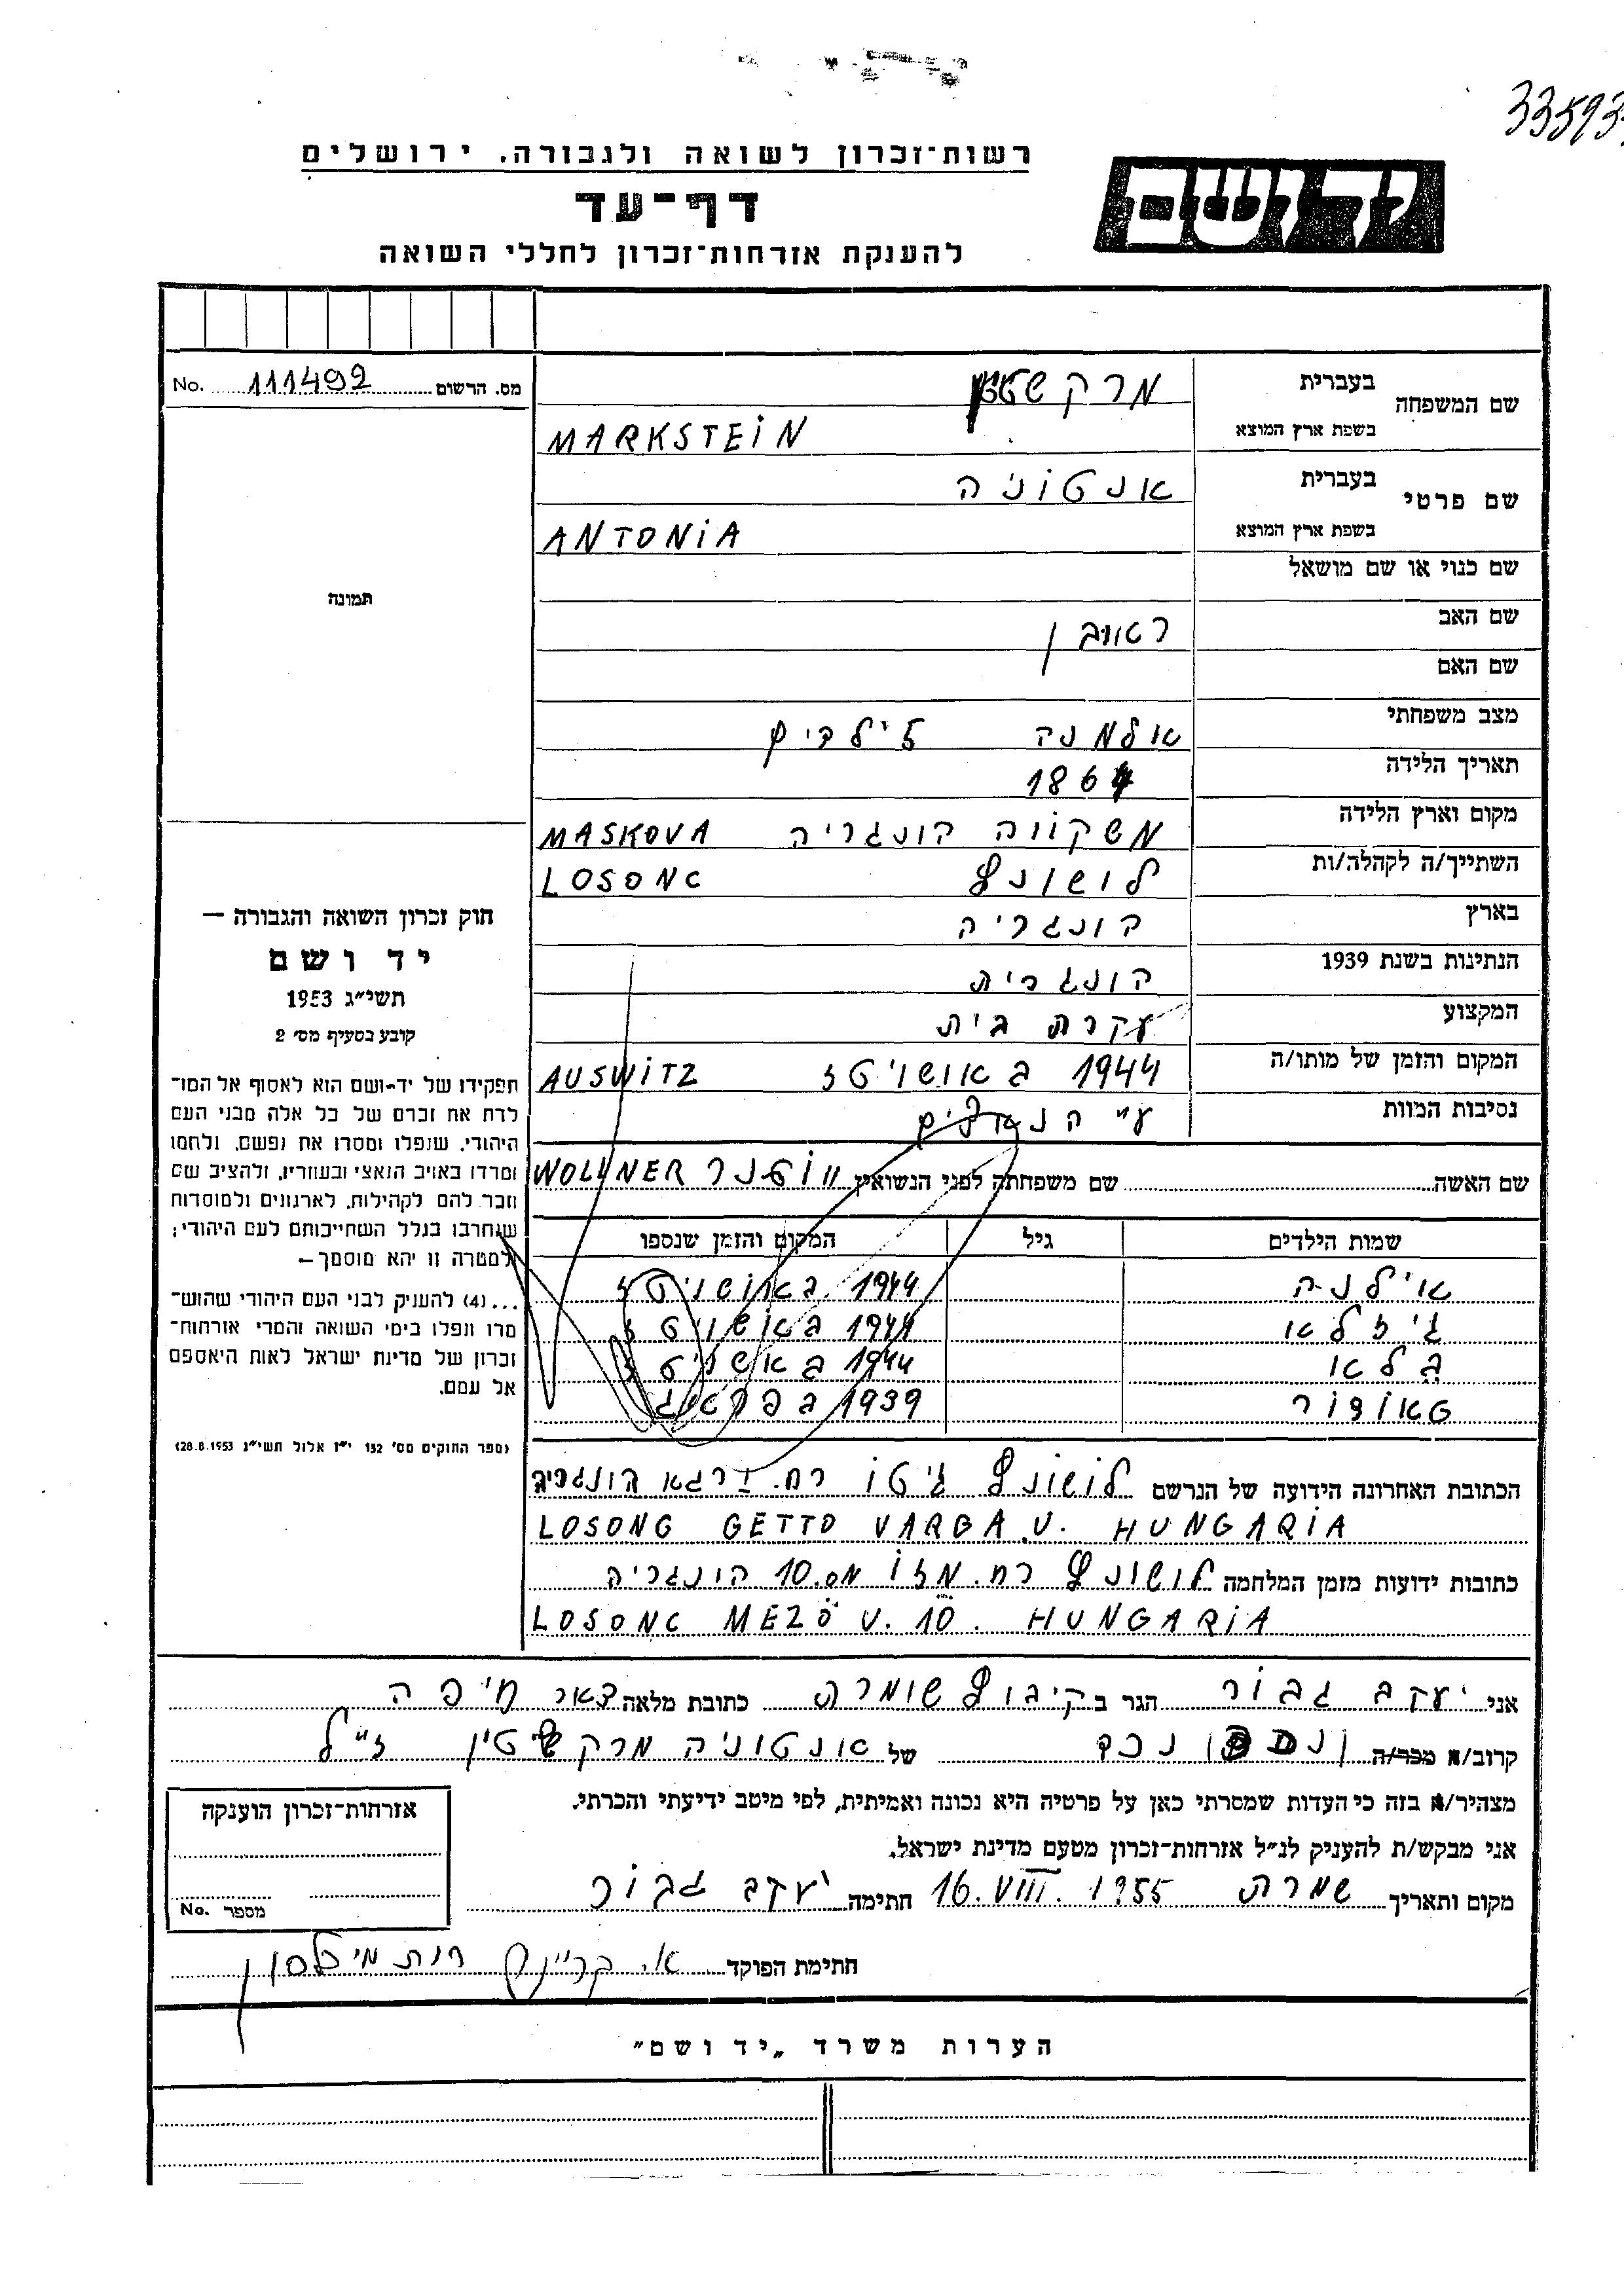 33593
רשות־זכרון לשואה ולגבורה, ירושלים
יד ושם
דף־עד
להענקת אזרחות־זכרון לחללי השואה
מס. הרשום 111492 No.
שם המשפחה
בעברית
בשפת ארץ המוצא MARKSTEIN
שם פרטי
בעברית אנטוניה
בשפת ארץ המוצא ANTONIA
שם כנוי או שם מושאל
שם האב ראובן
שם האם
מצב משפחתי אלמנה ילדים
תאריך הלידה 1864
מקום וארץ הלידה משקווה הונגריה MASKOVA
השתייך/ה לקהלה/ות לושונץ LOSONC
בארץ הונגריה
הנתינות בשנת 1939 הונגרית
המקצוע עקרת בית
המקום והזמן של מותו/ה 1944 באושויטז AUSWITZ
נסיבות המוות ע״י הנאצים
שם האשה שם משפחתה לפני הנשואין WOLLNER
שמות הילדים גיל המקום והזמן שנספו
אילנה 1944 באושויטז
גיזלא 1944 באושויטז
בלא 1944 באושויטז
1939
הכתובת האחרונה הידועה של הנרשם לושונץ גיטו רח. ורגא הונגריה
LOSONG GETTO VARGA U. HUNGARIA
כתובות ידועות מזמן המלחמה לושונץ רח. מזו מס. 10 הונגריה
LOSONC MEZÖ U. 10. HUNGARIA
תמונה
חוק זכרון השואה והגבורה —
יד ושם
תשי״ג 1953
קובע בסעיף מס׳ 2
תפקידו של יד־ושם הוא לאסוף אל המו־
לדת את זכרם של כל אלה מבני העם
היהודי, שנפלו ומסרו את נפשם, נלחמו
ומרדו באויב הנאצי ובעוזריו, ולהציב שם
וזכר להם לקהילות, לארגונים ולמוסדות
שנחרבו בגלל השתייכותם לעם היהודי;
למטרה זו יהא מוסמך —
...(4) להעניק לבני העם היהודי שהוש־
מדו ונפלו בימי השואה והמרי אזרחות־
זכרון של מדינת ישראל לאות היאספם
אל עמם.
(ספר החוקים מס׳ 132 י״ז אלול תשי״ג 28.8.1953)
אני יעקב גבור הגר ב קיבוץ שומרת כתובת מלאה דאר חיפה
קרוב/ה מכר/ה נכד של אנטוניה מרקשטין ז״ל
מצהיר/ה בזה כי העדות שמסרתי כאן על פרטיה היא נכונה ואמיתית, לפי מיטב ידיעתי והכרתי.
אני מבקש/ת להעניק לנ״ל אזרחות־זכרון מטעם מדינת ישראל.
מקום ותאריך שמרת 16.VIII.1955 חתימה יעקב גבור
חתימת הפוקד
אזרחות־זכרון הוענקה
מספר No.
הערות משרד „יד ושם״